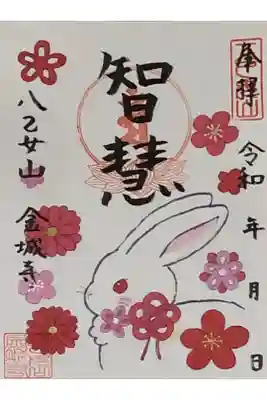 奉拝
令和 年 月 日
智慧
八乙女山
金城寺